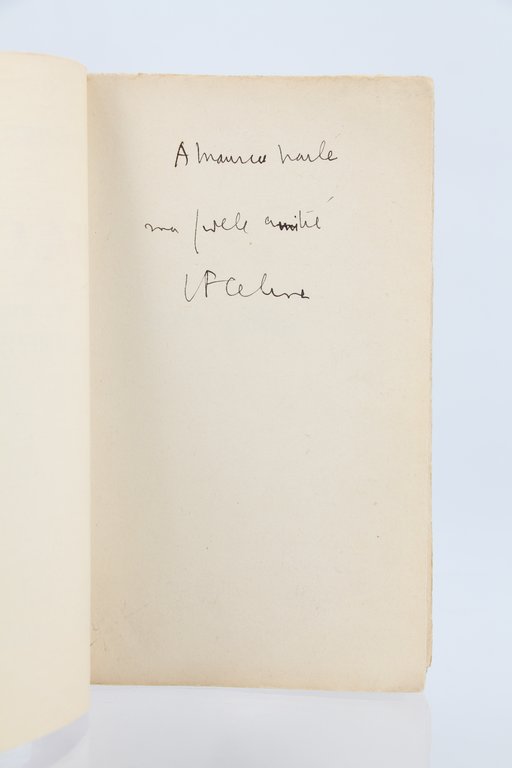 A Maurice Harlé
ma fidèle amitié
LF Celine